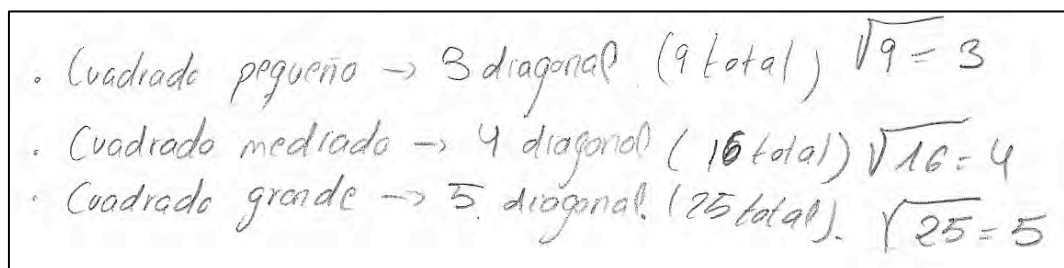 . Cuadrado pequeño → 3 diagonal (9 total) √9 = 3
. Cuadrado mediado → 4 diagonal (16 total) √16 = 4
. Cuadrado grande → 5. diagonal. (25 total). √25 = 5